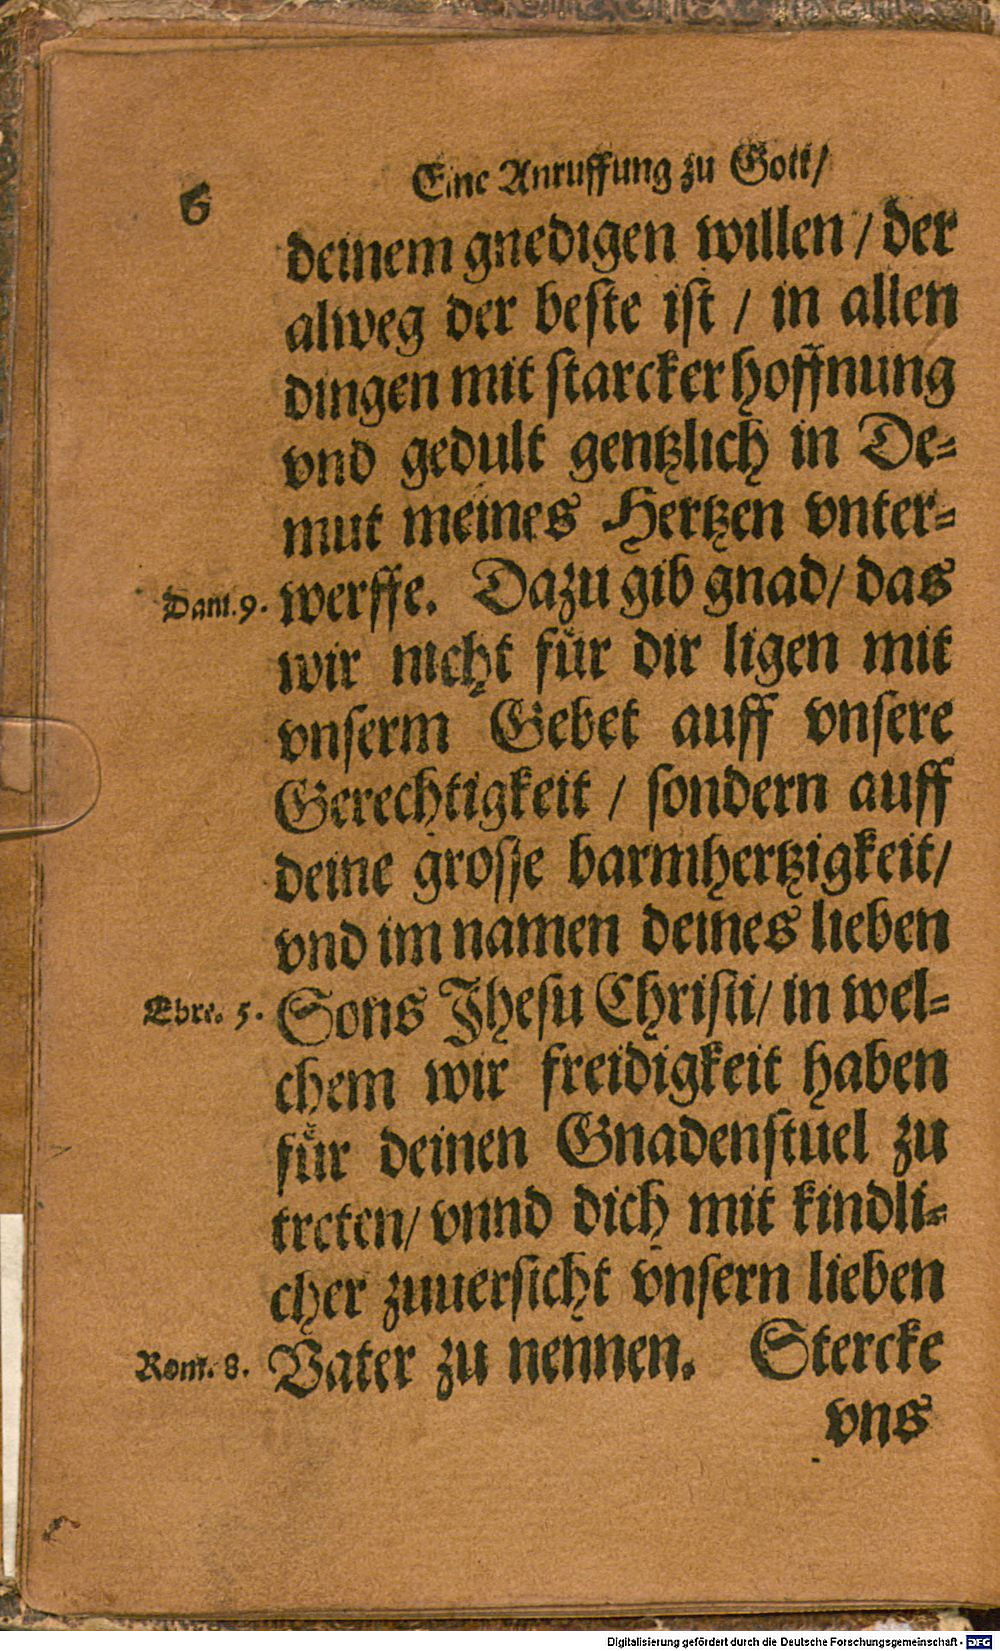 6
Eine Anruffung zu Gott/
deinem gnedigen willen / der
alweg der beste ist / in allen
dingen mit starcker hoffnung
vnd gedult gentzlich in De=
mut meines Hertzen vnter=
Dani. 9. werffe. Dazu gib gnad/ das
wir nicht fuͤr dir ligen mit
vnserm Gebet auff vnsere
Gerechtigkeit / sondern auff
deine grosse barmhertzigkeit/
vnd im namen deines lieben
Ebre. 5. Sons Jhesu Christi/ in wel=
chem wir freidigkeit haben
fuͤr deinen Gnadenstuel zu
treten/ vnnd dich mit kindli=
cher zuuersicht vnsern lieben
Rom. 8. Vater zu nennen. Stercke
vns
Digitalisierung gefördert durch die Deutsche Forschungsgemeinschaft - DFG